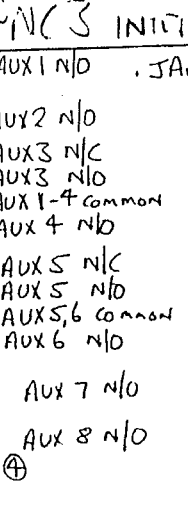 PNC 3 INITI
AUX 1 N/O . JA
AUX2 N/O
AUX3 N/C
AUX3 N/O
AUX 1-4 COMMON
AUX 4 N/O
AUX 5 N/C
AUX 5 N/O
AUX 5,6 COMMON
AUX 6 N/O
AUX 7 N/O
AUX 8 N/O
④